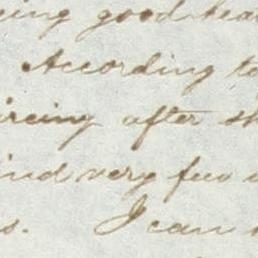 ing good hea
According to
ircing after sh
ind very few
s. I can